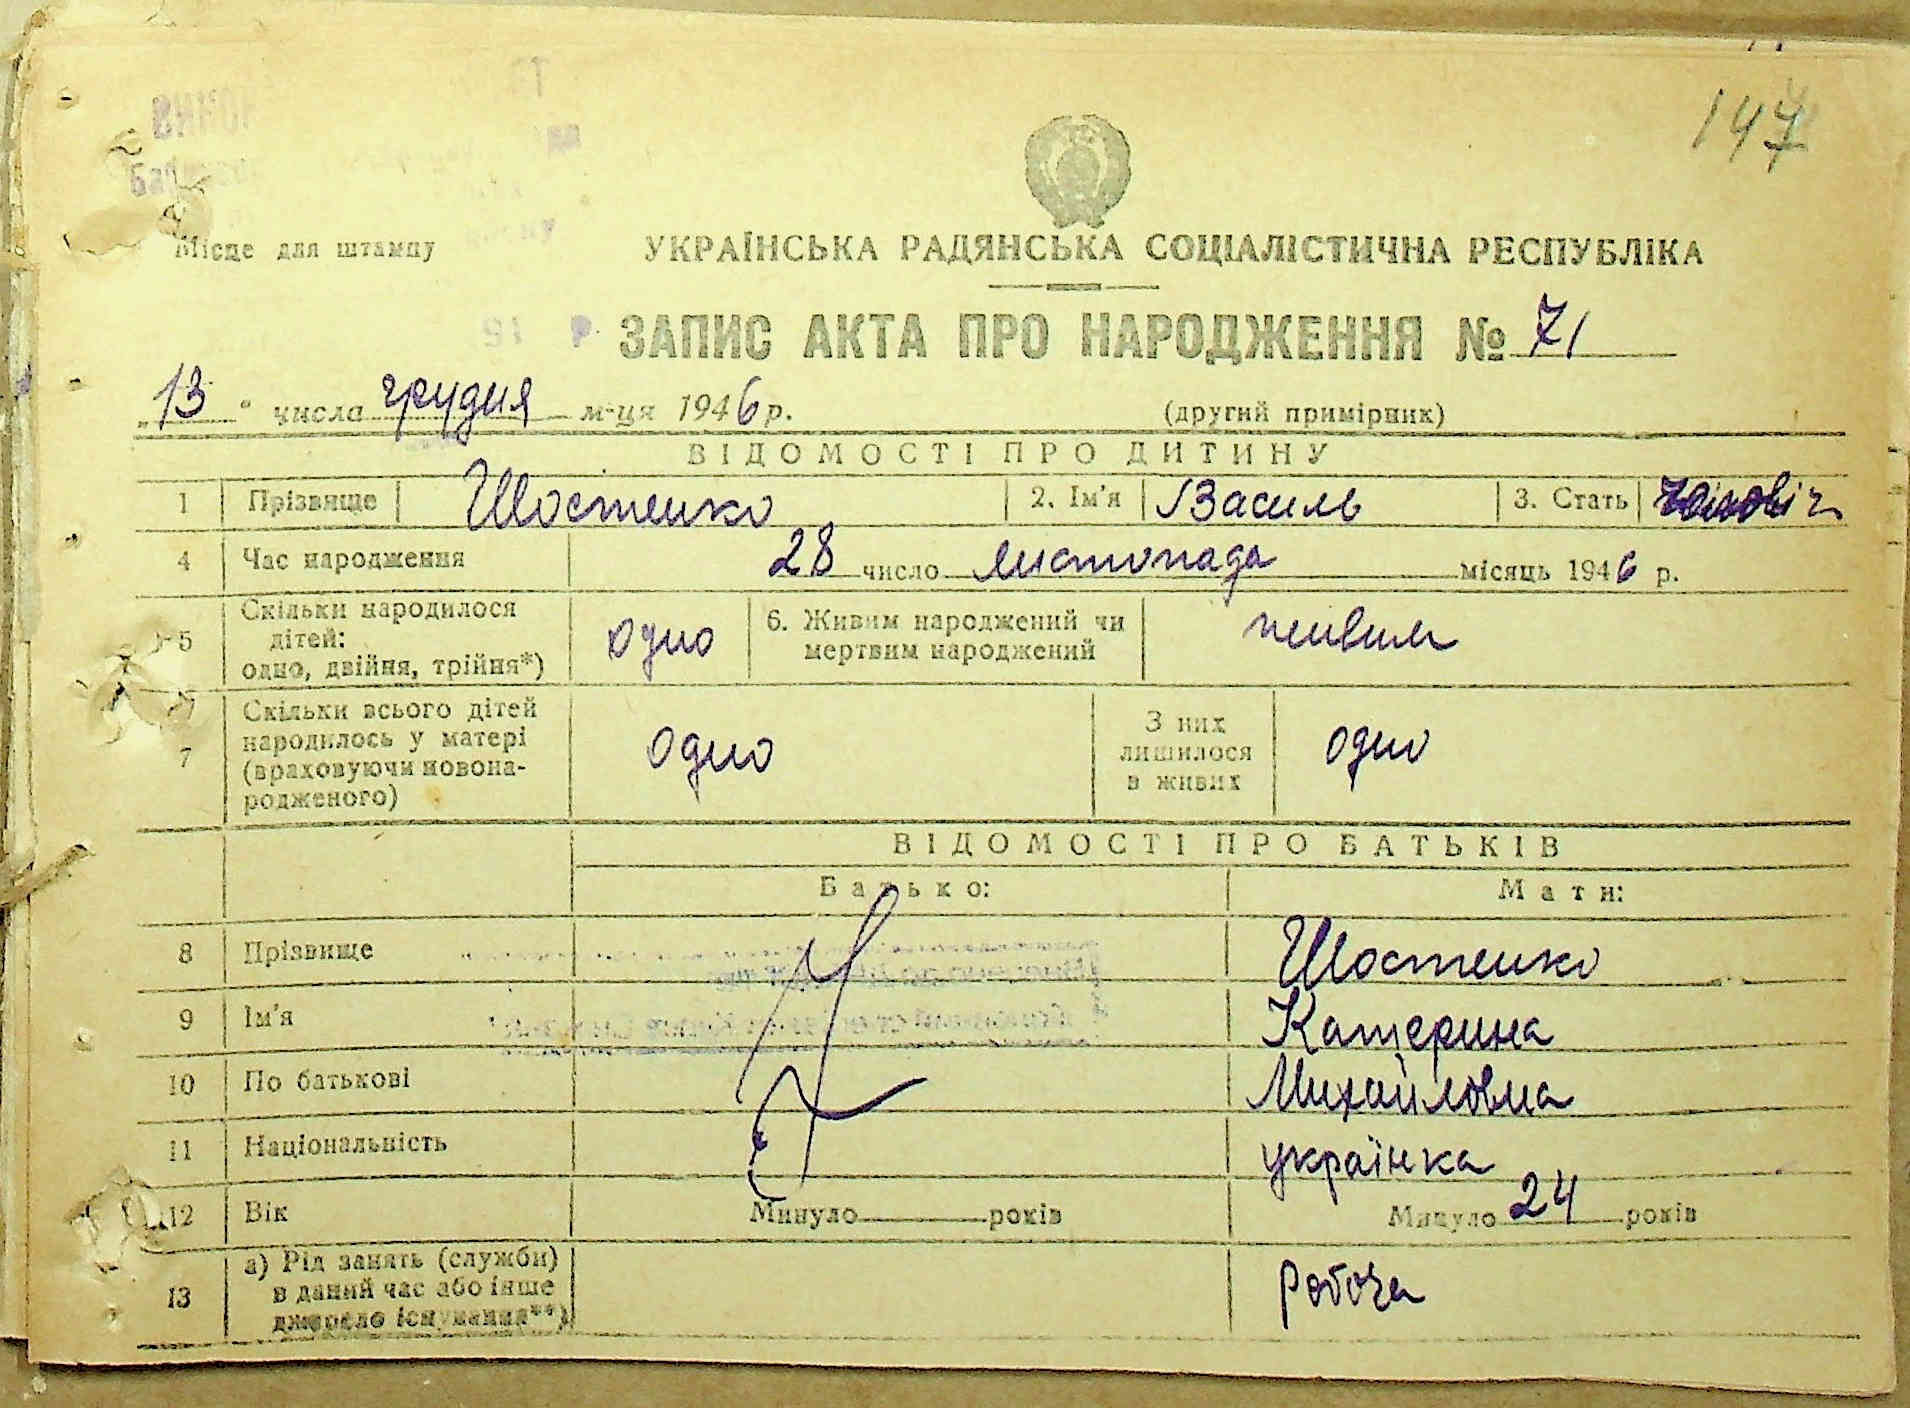 147
Місце для штампу
УКРАЇНСЬКА РАДЯНСЬКА СОЦІАЛІСТИЧНА РЕСПУБЛІКА
ЗАПИС АКТА ПРО НАРОДЖЕННЯ № 71
„13“ числа грудня м-ця 1946 р.
(другий примірник)
ВІДОМОСТІ ПРО ДИТИНУ
1 Прізвище Шостенко 2. Ім'я Василь 3. Стать
4 Час народження 28 число листопада місяць 1946 р.
5 Скільки народилося дітей: одно, двійня, трійня*) одно 6. Живим народжений чи мертвим народжений живим
7 Скільки всього дітей народилось у матері (враховуючи новонародженого) одно З них лишилося в живих одно
ВІДОМОСТІ ПРО БАТЬКІВ
Батько: Мати:
8 Прізвище Шостенко
9 Ім'я Катерина
10 По батькові Михайловна
11 Національність українка
12 Вік Минуло років Минуло 24 років
13 а) Рід занять (служби) в даний час або інше джерело існування**) робоча